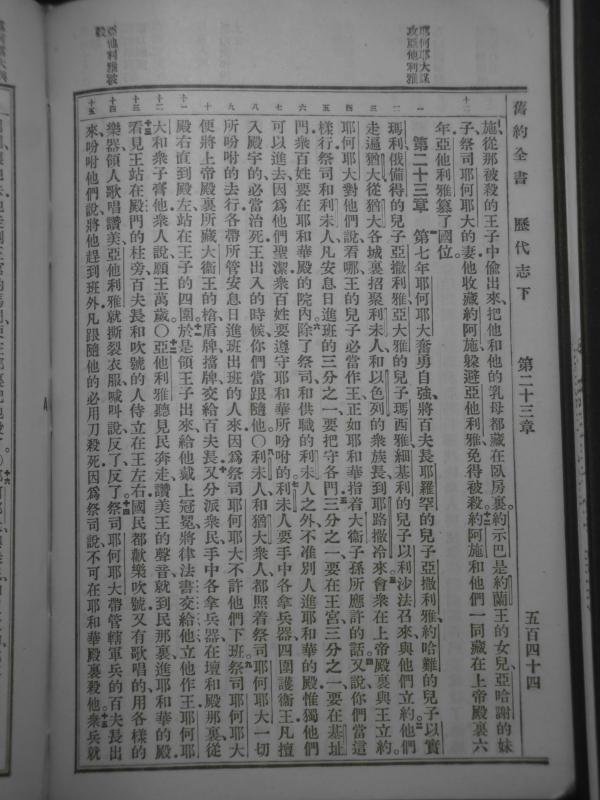 耶何耶大謀
攻亞他利雅
亞他利雅被
殺
舊約全書 歷代志下 第二十三章 五百四十四
施從那被殺的王子中偷出來把他和他的乳母都藏在臥房裏約示巴是約蘭王的女兒亞哈謝的妹
十二
子祭司耶何耶大的妻他收藏約阿施躲避亞他利雅免得被殺十二約阿施和他們一同藏在上帝殿裏六
年亞他利雅篡了國位
一
第二十三章 第七年耶何耶大奮勇自強將百夫長耶羅罕的兒子亞撒利雅約哈難的兒子以實
二
瑪利俄備得的兒子亞撒利雅亞大雅的兒子瑪西雅細基利的兒子以利沙法召來與他們立約他們
三
走遍猶大從猶大各城裏招聚利未人和以色列的衆族長到耶路撒冷來三會衆在上帝殿裏與王立約
四
耶何耶大對他們說看哪王的兒子必當作王正如耶和華指着大衞子孫所應許的話四又說你們當這
五
樣行祭司和利未人凡安息日進班的三分之一要把守各門五三分之一要在王宮三分之一要在基址
六
門衆百姓要在耶和華殿的院內六除了祭司和供職的利未人之外不准別人進耶和華的殿惟獨他們
七
可以進去因爲他們聖潔衆百姓要遵守耶和華所吩咐的七利未人要手中各拿兵器四圍護衞王凡擅
八
入殿宇的必當治死王出入的時候你們當跟隨他○八利未人和猶大衆人都照着祭司耶何耶大一切
九
所吩咐的去行各帶所管安息日進班出班的人來因爲祭司耶何耶大不許他們下班九祭司耶何耶大
十
便將上帝殿裏所藏大衞王的槍盾牌擋牌交給百夫長十又分派衆民手中各拿兵器在壇和殿那裏從
十一
殿右直到殿左站在王子的四圍十一於是領王子出來給他戴上冠冕將律法書交給他立他作王耶何耶
十二
大和衆子膏他衆人說願王萬歲○十二亞他利雅聽見民奔走讚美王的聲音就到民那裏進耶和華的殿
十三
十三看見王站在殿門的柱旁百夫長和吹號的人侍立在王左右國民都歡樂吹號又有歌唱的用各樣的
十四
樂器領人歌唱讚美亞他利雅就撕裂衣服喊叫說反了反了十四祭司耶何耶大帶管轄軍兵的百夫長出
十五
來吩咐他們說將他趕到班外凡跟隨他的必用刀殺死因爲祭司說不可在耶和華殿裏殺他十五衆兵就